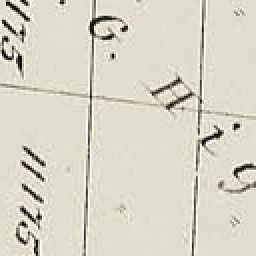 1175
6.
Hig
11175